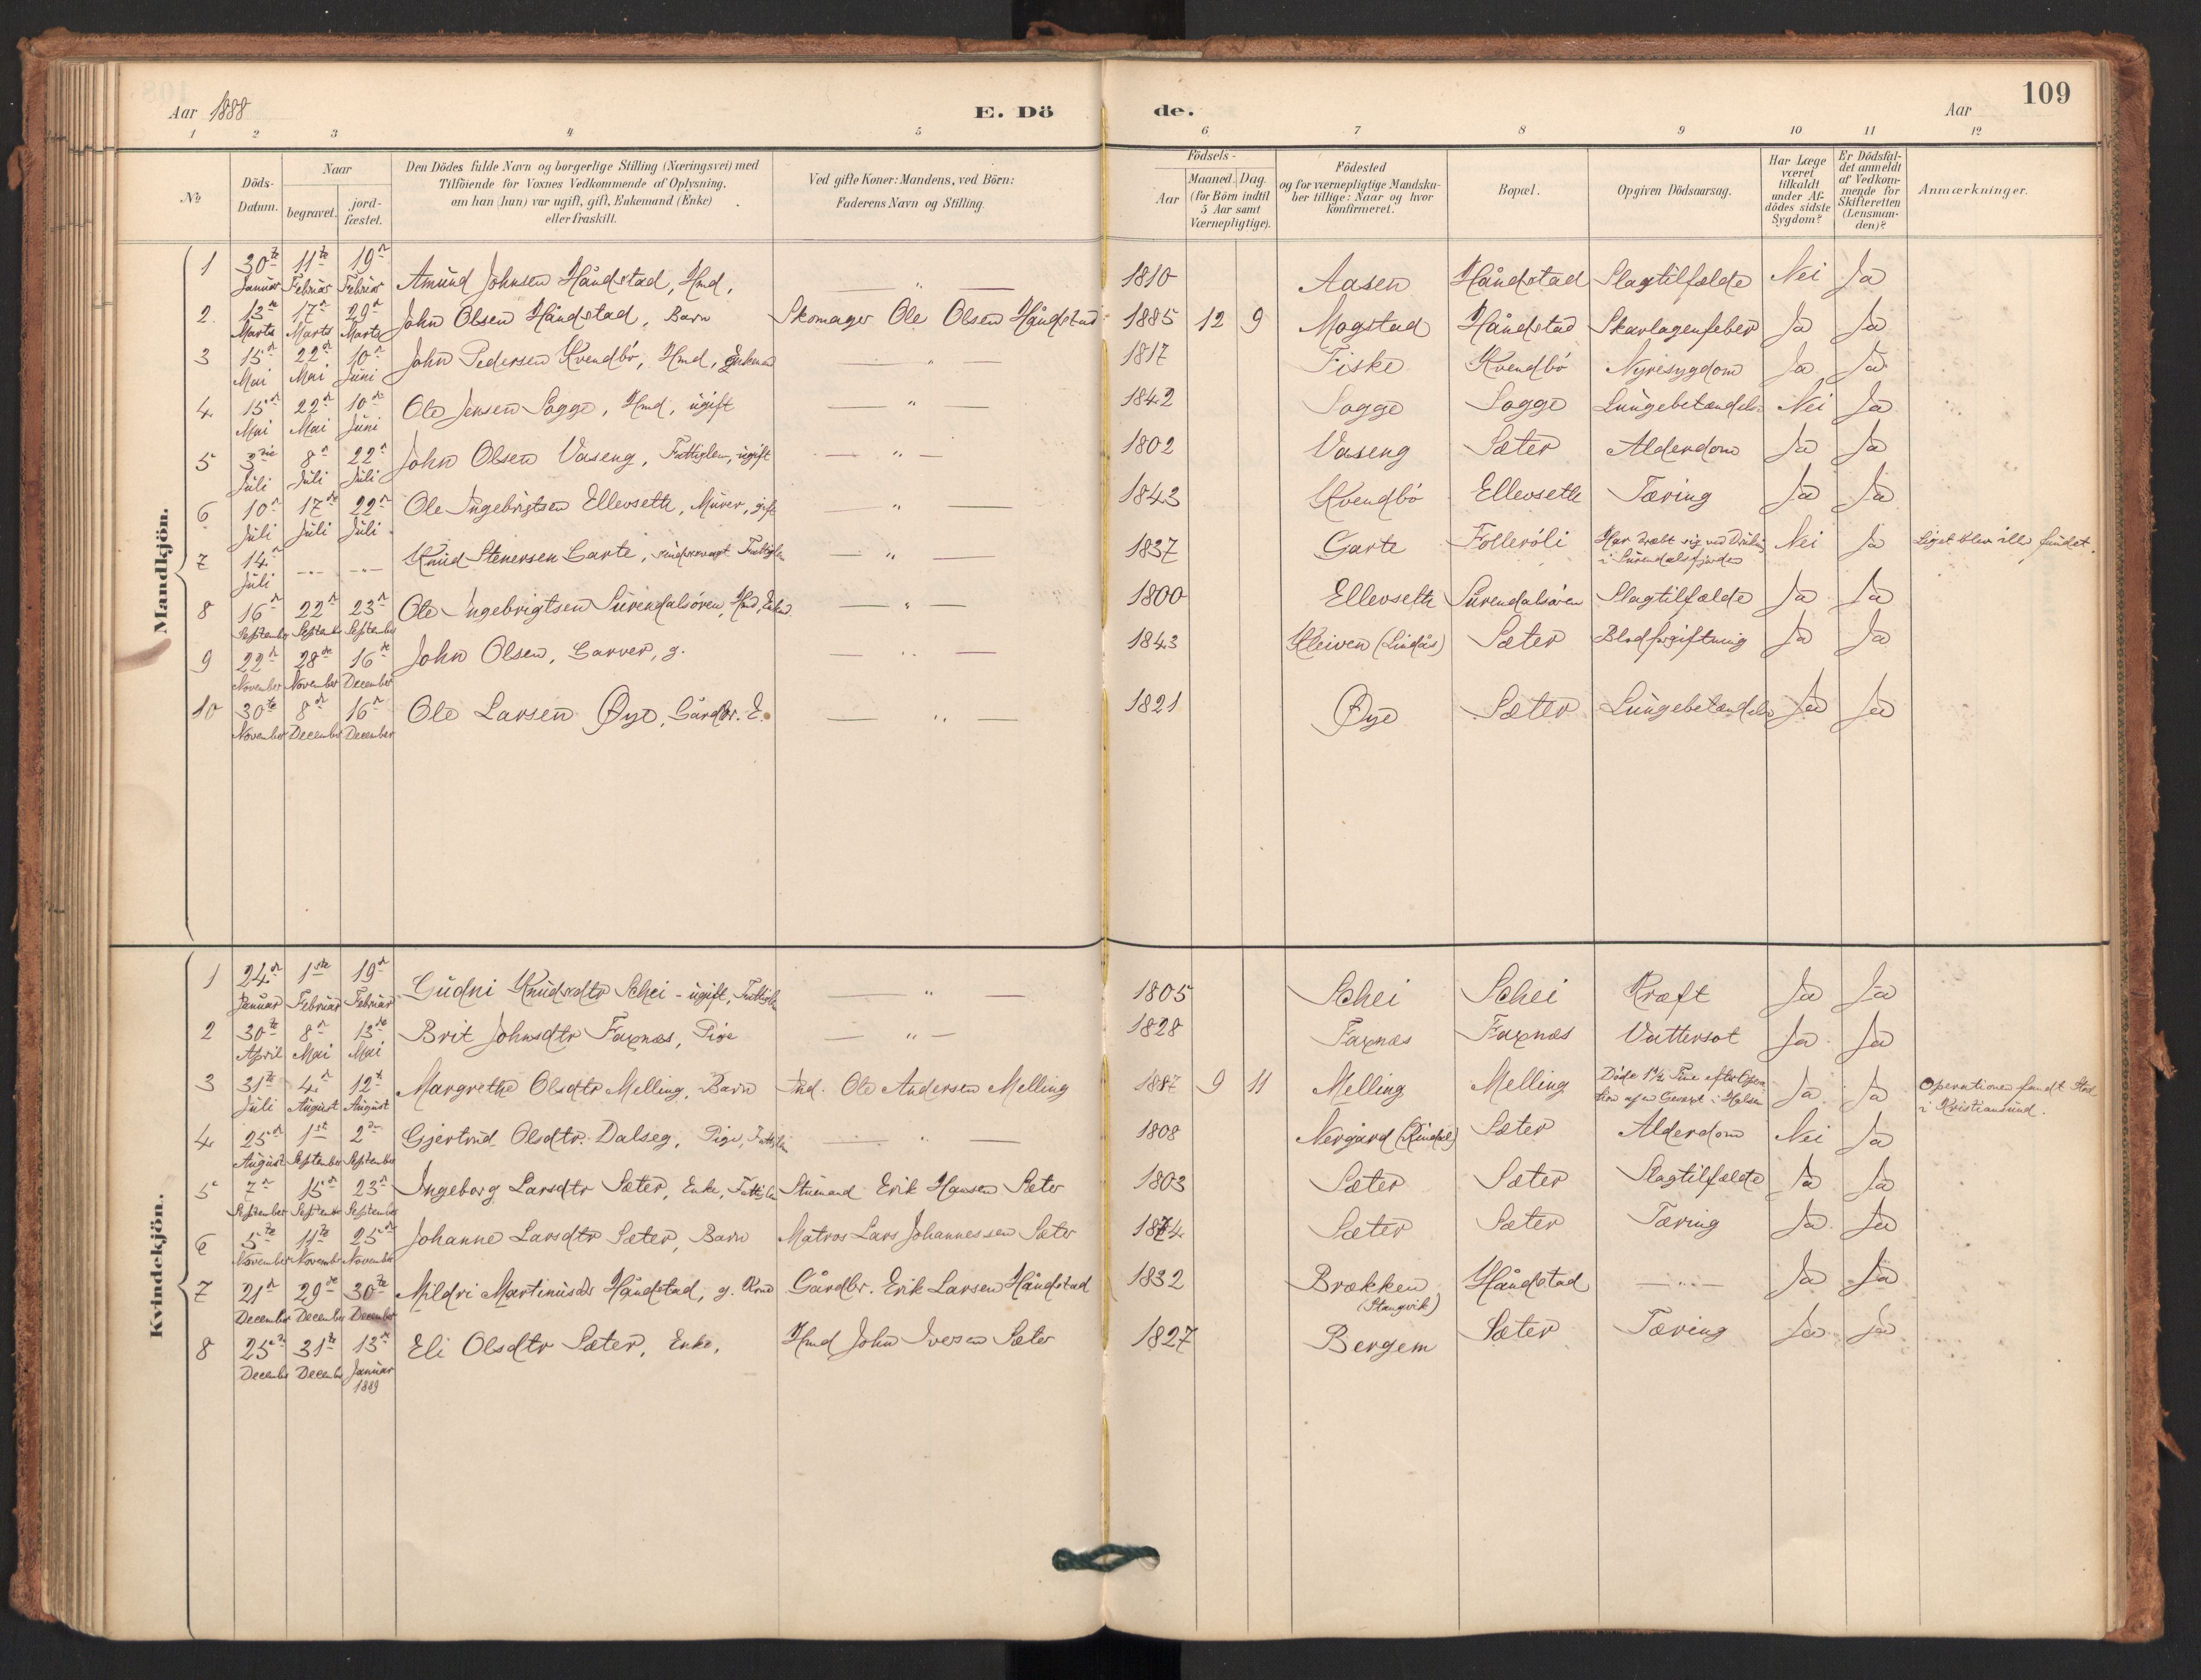 Aar 1888
E. Dö
de.
Aar
109
1 2 3 4 5 6 7 8 9 10 11 12
No
Döds-
Datum.
Naar
begravet.
jord-
fæstet.
Den Dödes fulde Navn og borgerlige Stilling (Næringsvei) med
Tilföiende for Voxnes Vedkommende af Oplysning,
om han (hun) var ugift, gift, Enkemand (Enke)
eller fraskilt.
Ved gifte Koner: Mandens, ved Börn:
Faderens Navn og Stilling.
Födsels-
Aar
Maaned. Dag
(for Börn indtil
5 Aar samt
Værnepligtige).
Födested
og for værnepligtige Mandska-
ber tillige: Naar og hvor
konfirmeret.
Bopæl.
Opgiven Dödsaarsag.
Har Læge
været
tilkaldt
under Af-
dödes sidste
Sygdom?
Er Dödsfal-
det anmeldt
af Vedkom-
mende for
Skifteretten
(Lensman-
den)?
Anmærkninger.
Mandkjön.
1 30te Januar 11te Februar 19de Februar Amund Johnsen Håndstad, Hmd, — " — 1810 Aasen Håndstad Slagtilfælde Nei Ja
2. 13de Marts 17de Marts 29de Marts John Olsen Håndstad, Barn Skomager Ole Olsen Håndstad 1885 12 9 Mogstad Håndstad Skarlagenfeber Ja Ja
3 15de Mai 22de Mai 10de Juni John Pedersen Kvendbö, Hmd, Enkem — " — 1817 Fiske Kvendbö Nyresygdom Ja Ja
4 15de Mai 22de Mai 10de Juni Ole Jensen Sogge, Hmd, ugift — " — 1842 Sogge Sogge Lungebetændelse Nei Ja
5 3die Juli 8de Juli 22de Juli John Olsen Vaseng, Fattiglem, ugift — " — 1802 Vaseng Sæter Alderdom Ja Ja
6 10de Juli 17de Juli 22de Juli Ole Ingebrigtsen Ellevseth, Murer, gift — " — 1843 Kvendbö Ellevseth Tæring Ja Ja
7 14de Juli — " — — " — Knud Stenersen Garte, sindssvagt Fattiglem — " — 1837 Garte Folleröli Har dræbt sig ved Drukning
i Surendalsfjorden Nei Ja Liget blev ill fundet.
8 16de September 22de September 23de September Ole Ingebrigtsen Surendalsören, Hmd, Enkmd — " — 1800 Ellevseth Surendalsören Slagtilfælde Ja Ja
9 22de November 28de November 16de December John Olsen, Garver, g. — " — 1843 Kleiven (Lindås) Sæter Blodforgiftning Ja Ja
10 30te November 8de December 16de December Ole Larsen Øye, Gårdbr. E. — " — 1821 Øye Sæter Lungebetændelse Ja Ja
Kvindekjön.
1 24de Januar 1ste Februar 19de Februar Gudni Knudsdtr Schei - ugift, Fattiglem — " — 1805 Schei Schei Kræft Ja Ja
2 30te April 8de Mai 13de Mai Brit Johnsdtr Faxnæs, Pige — " — 1828 Faxnæs Faxnæs Vattersot Ja Ja
3 31te Juli 4de August 12te August Margrethe Olsdtr Melling, Barn Ind. Ole Andersen Melling 1887 9 11 Melling Melling Döde 1½ Time efter Opera-
tion af en Gevæxt i Halsen Ja Ja Operationen fandt Sted
i Kristiansund.
4 25de August 1ste September 2den September Gjertrud Olsdtr. Dalseg, Pige, Fattiglem — " — 1808 Nergård (Rindal) Sæter Alderdom Nei Ja
5 7de September 15de September 23de September Ingeborg Larsdtr Sæter, Enke, Fattiglem Stuemand Erik Hansen Sæter 1803 Sæter Sæter Slagtilfælde Ja Ja
6 5te November 11te November 25de November Johanne Larsdtr Sæter, Barn Matros Lars Johannessen Sæter 1874 Sæter Sæter Tæring Ja Ja
7 21de December 29de December 30te December Mildri Martinusdtr Håndstad, g. Kone Gårdbr. Erik Larsen Håndstad 1832 Brækken
(Stangvik) Håndstad — " — Ja Ja
8 25de December 31te December 13de Januar
1889 Eli Olsdtr Sæter, Enke, Hmd John Iversen Sæter 1827 Bergem Sæter Tæring Ja Ja